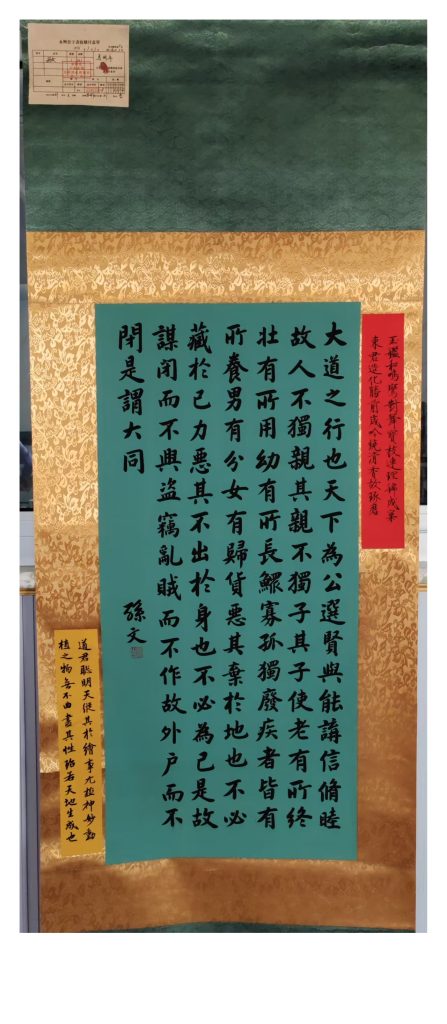 玉鑑和鳴鸞對舞寶枝連理錦成窠
東君造化勝前歲吟繞清香故琢磨
大道之行也天下為公選賢與能講信脩睦
故人不獨親其親不獨子其子使老有所終
壯有所用幼有所長鰥寡孤獨廢疾者皆有
所養男有分女有歸貨惡其棄於地也不必
藏於己力惡其不出於身也不必為己是故
謀閉而不興盜竊亂賊而不作故外戶而不
閉是謂大同
孫文
道君聰明天從其於繪事尤極神妙動
植之物無不曲盡其性殆若天地生成也